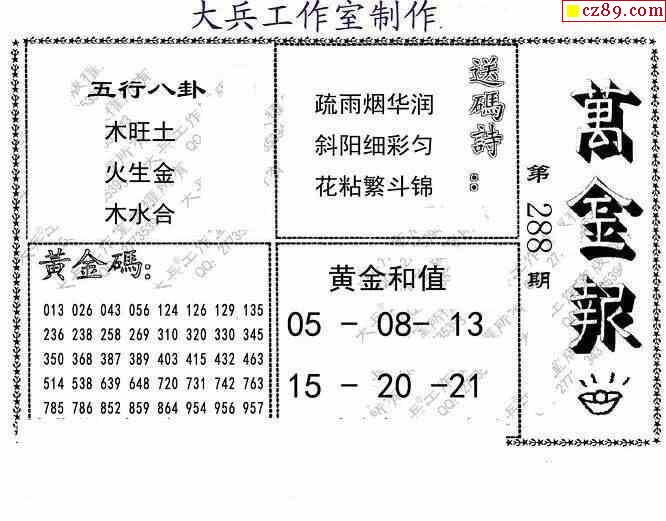 大兵工作室制作
cz89.com
五行八卦
木旺土
火生金
木水合
送碼詩：
疏雨烟华润
斜阳细彩匀
花粘繁斗锦
萬金報
第288期
黃金碼：
013 026 043 056 124 126 129 135
236 238 258 269 310 320 330 345
350 368 387 389 403 415 432 463
514 538 639 648 720 731 742 763
785 786 852 859 864 954 956 957
黄金和值
05 - 08- 13
15 - 20 -21